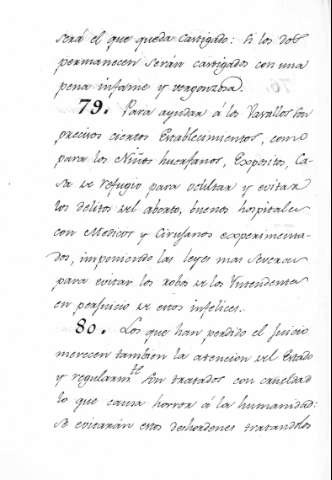 será el que queda castigado: si los dos
permanecen serán castigados con una
pena infame y vergonzosa.
79. Para ayudar á los Vasallos son
precisos ciertos Establecimientos, como
para los Niños huerfanos, Expositos, Ca-
sa de refugio para ocultar y evitar
los delitos del aborto, buenos hospitales
con Medicos y Cirujanos experimenta-
dos, imponiendo las leyes mas severas
para evitar los robos de los Yntendentes
en perjuicio de estos infelices.
80. Los que han perdido el juicio
merecen tambien la atencion del Estado
y regularmte son tratados con crueldad
lo que causa horror á la humanidad:
se evitarán estos deshordenes tratandolos